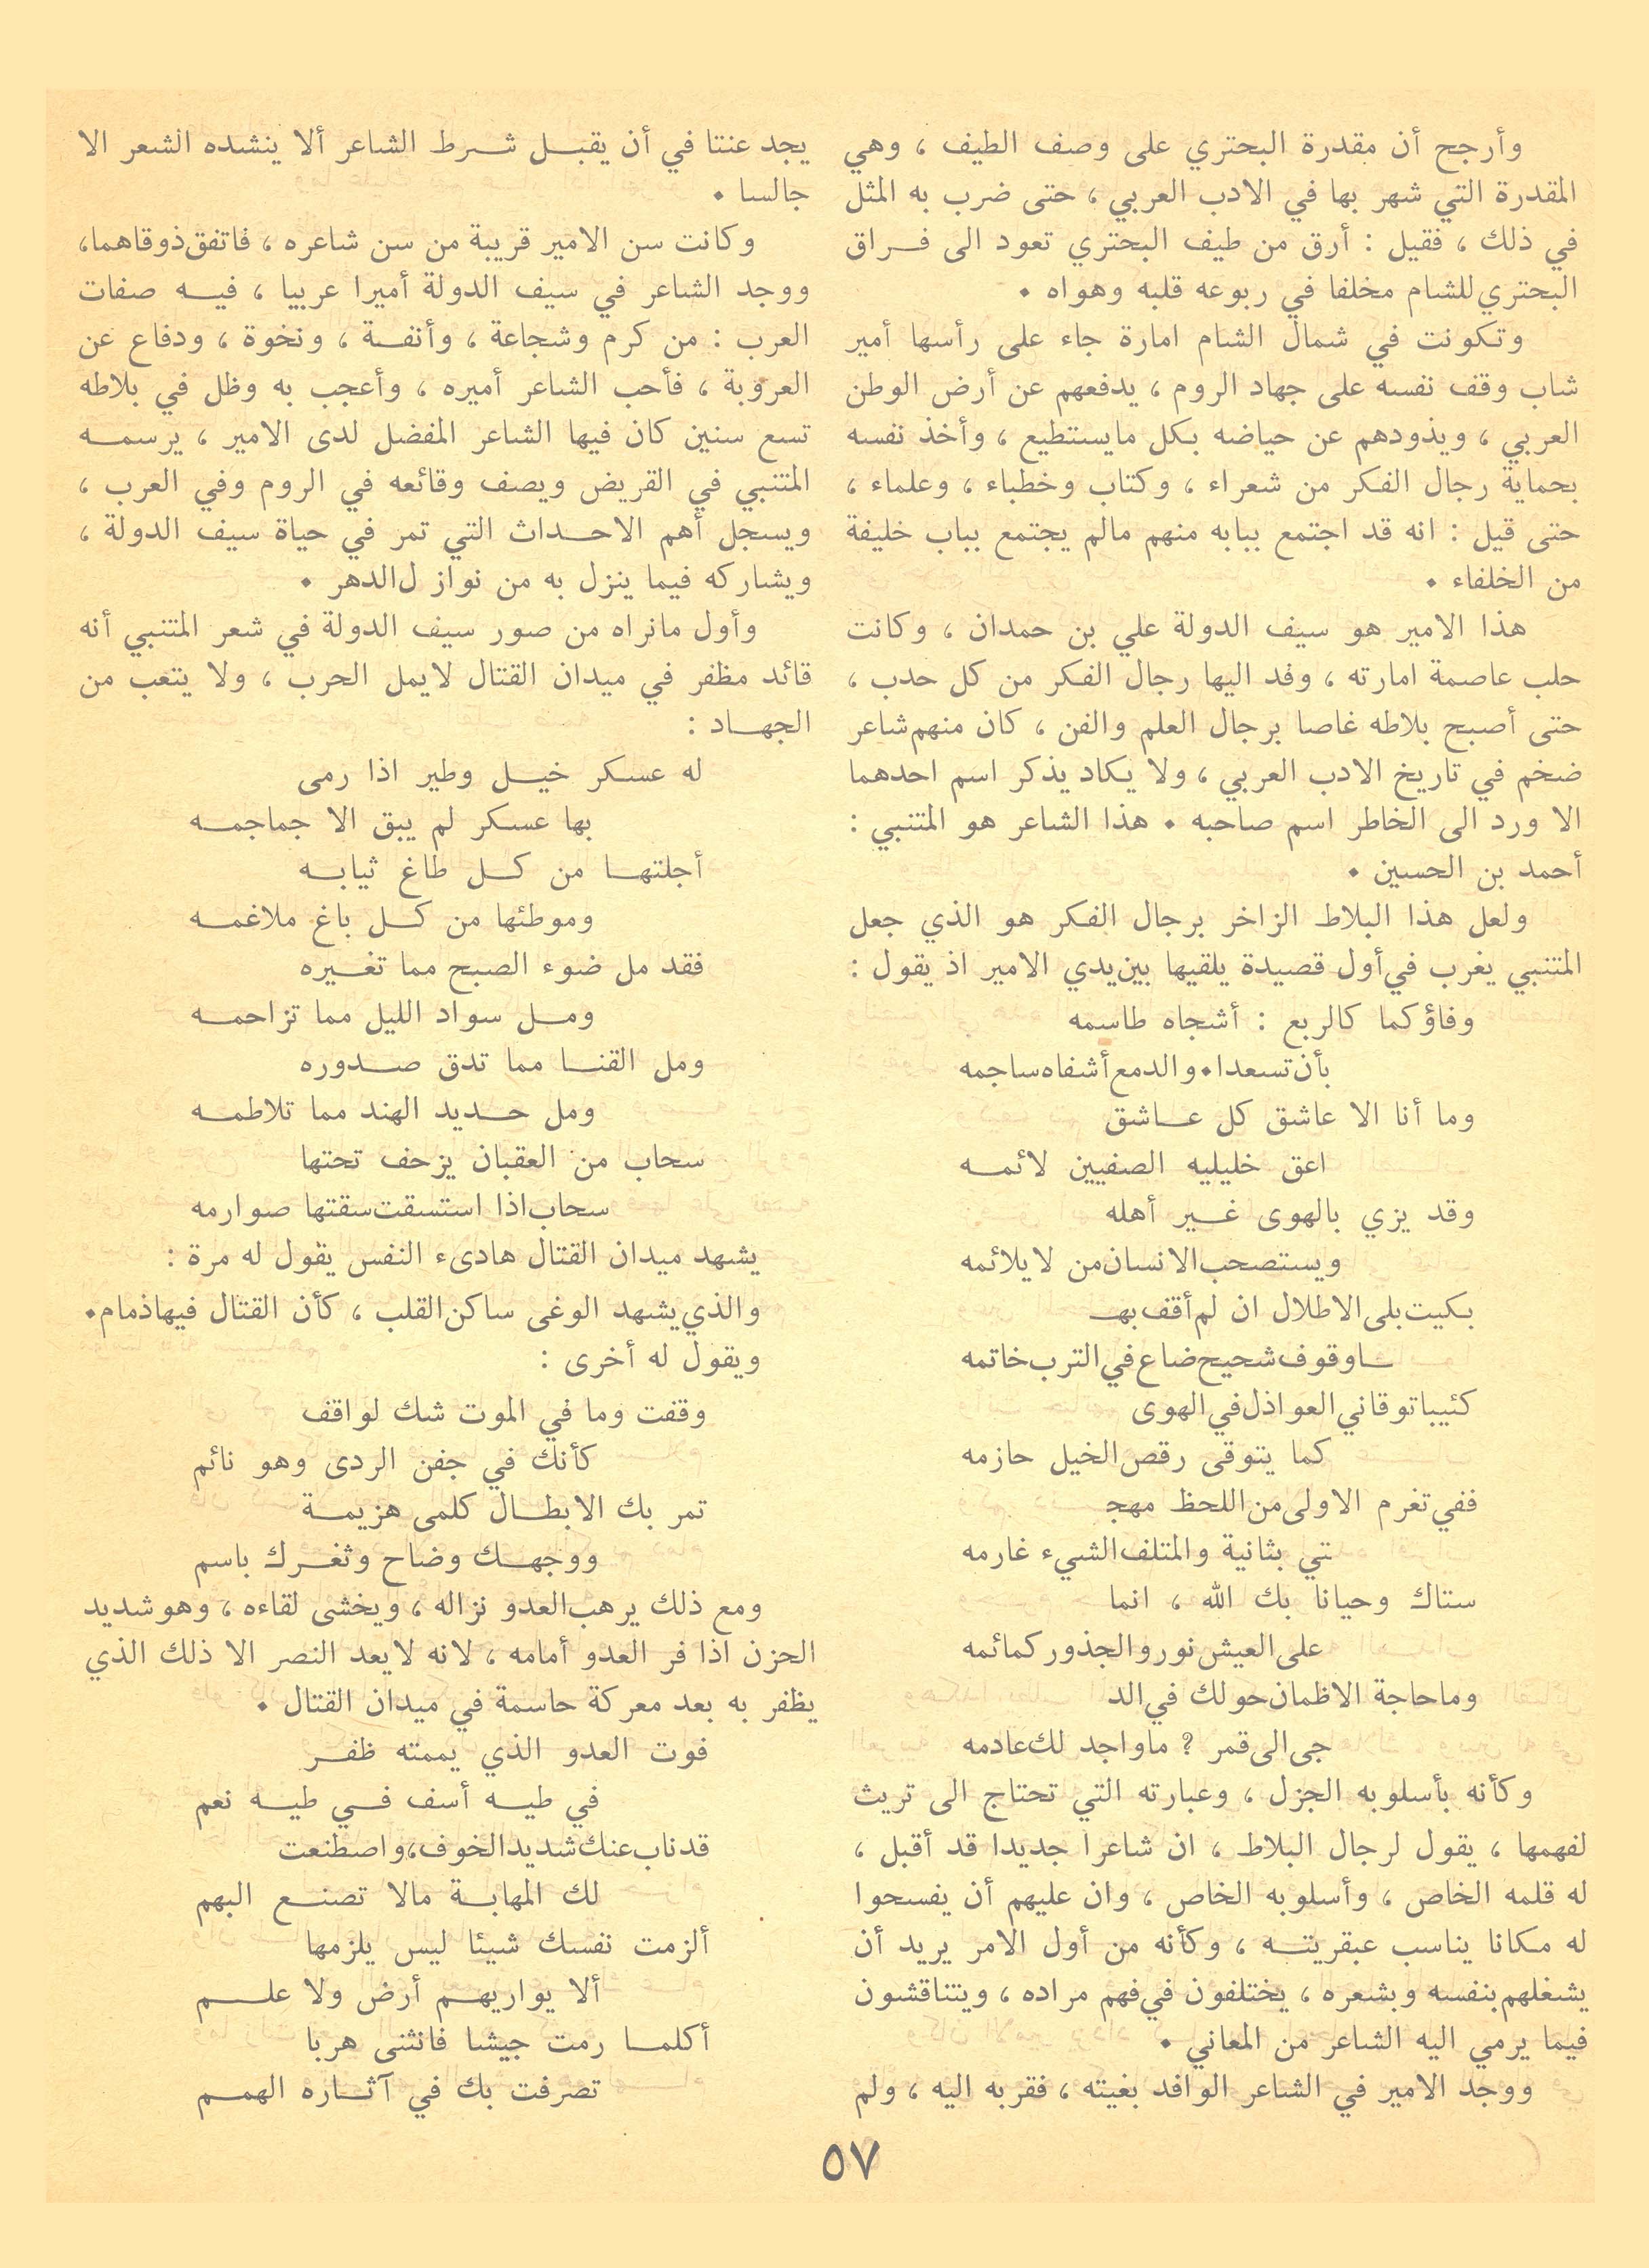 وأرجح أن مقدرة البحتري على وصف الطيف ، وهي
المقدرة التي شهر بها في الادب العربي ، حتى ضرب به المثل
في ذلك ، فقيل : أرق من طيف البحتري تعود الى فراق
البحتري للشام مخلفا في ربوعه قلبه وهواه .
وتكونت في شمال الشام امارة جاء على رأسها أمير
شاب وقف نفسه على جهاد الروم ، يدفعهم عن أرض الوطن
العربي ، ويذودهم عن حياضه بكل مايستطيع ، وأخذ نفسه
بحماية رجال الفكر من شعراء ، وكتاب وخطباء ، وعلماء ،
حتى قيل : انه قد اجتمع ببابه منهم مالم يجتمع بباب خليفة
من الخلفاء .
هذا الامير هو سيف الدولة علي بن حمدان ، وكانت
حلب عاصمة امارته ، وفد اليها رجال الفكر من كل حدب ،
حتى أصبح بلاطه غاصا برجال العلم والفن ، كان منهم شاعر
ضخم في تاريخ الادب العربي ، ولا يكاد يذكر اسم احدهما
الا ورد الى الخاطر اسم صاحبه . هذا الشاعر هو المتنبي :
أحمد بن الحسين .
ولعل هذا البلاط الزاخر برجال الفكر هو الذي جعل
المتنبي يغرب في أول قصيدة يلقيها بين يدي الامير اذ يقول :
وفاؤكما كالربع : أشجاه طاسمه
بأن تسعدا. والدمع أشفاه ساجمه
وما أنا الا عاشق كل عاشق
اعق خليليه الصفيين لائمه
وقد يزي بالهوى غير أهله
ويستصحب الانسان من لايلائمه
بكيت بلى الاطلال ان لم أقف بهـ
ـاوقوف شحيح ضاع في الترب خاتمه
كئيبا توقاني العواذل في الهوى
كما يتوقى رقص الخيل حازمه
ففي تغرم الاولى من اللحظ مهجـ
تي بثانية والمتلف الشيء غارمه
ستاك وحيانا بك الله ، انما
على العيش نور والجذور كمائمه
وما حاجة الاظمان حولك في الد
جى الى قمر ? ماواجد لك عادمه
وكأنه بأسلوبه الجزل ، وعبارته التي تحتاج الى تريث
لفهمها ، يقول لرجال البلاط ، ان شاعرا جديدا قد أقبل ،
له قلمه الخاص ، وأسلوبه الخاص ، وان عليهم أن يفسحوا
له مكانا يناسب عبقريته ، وكأنه من أول الامر يريد أن
يشغلهم بنفسه وبشعره ، يختلفون في فهم مراده ، ويتناقشون
فيما يرمي اليه الشاعر من المعاني .
ووجد الامير في الشاعر الوافد بغيته ، فقربه اليه ، ولم
يجد عنتا في أن يقبل شرط الشاعر ألا ينشده الشعر الا
جالسا .
وكانت سن الامير قريبة من سن شاعره ، فاتفق ذوقاهما،
ووجد الشاعر في سيف الدولة أميرا عربيا ، فيه صفات
العرب : من كرم وشجاعة ، وأنفة ، ونخوة ، ودفاع عن
العروبة ، فأحب الشاعر أميره ، وأعجب به وظل في بلاطه
تسع سنين كان فيها الشاعر المفضل لدى الامير ، يرسمه
المتنبي في القريض ويصف وقائعه في الروم وفي العرب ،
ويسجل أهم الاحداث التي تمر في حياة سيف الدولة ،
ويشاركه فيما ينزل به من نواز ل الدهر .
وأول مانراه من صور سيف الدولة في شعر المتنبي أنه
قائد مظفر في ميدان القتال لايمل الحرب ، ولا يتعب من
الجهاد :
له عسكر خيل وطير اذا رمى
بها عسكر لم يبق الا جماجمه
أجلتها من كل طاغ ثيابه
وموطئها من كل باغ ملاغمه
فقد مل ضوء الصبح مما تغيره
ومل سواد الليل مما تزاحمه
ومل القنا مما تدق صدوره
ومل حديد الهند مما تلاطمه
سحاب من العقبان يزحف تحتها
سحاب اذا استسقت سقتها صوارمه
يشهد ميدان القتال هادىء النفس يقول له مرة :
والذي يشهد الوغى ساكن القلب ، كأن القتال فيها ذمام.
ويقول له أخرى :
وقفت وما في الموت شك لواقف
كأنك في جفن الردى وهو نائم
تمر بك الابطال كلمى هزيمة
ووجهك وضاح وثغرك باسم
ومع ذلك يرهب العدو نزاله ، ويخشى لقاءه ، وهو شديد
الحزن اذا فر العدو أمامه ، لانه لايعد النصر الا ذلك الذي
يظفر به بعد معركة حاسمة في ميدان القتال .
فوت العدو الذي يممته ظفر
في طيه أسف في طيه نعم
قد ناب عنك شديد الخوف، واصطنعت
لك المهابة مالا تصنع البهم
ألزمت نفسك شيئا ليس يلزمها
ألا يواريهم أرض ولا علم
أكلما رمت جيشا فانثنى هربا
تصرفت بك في آثاره الهمم
٥٧